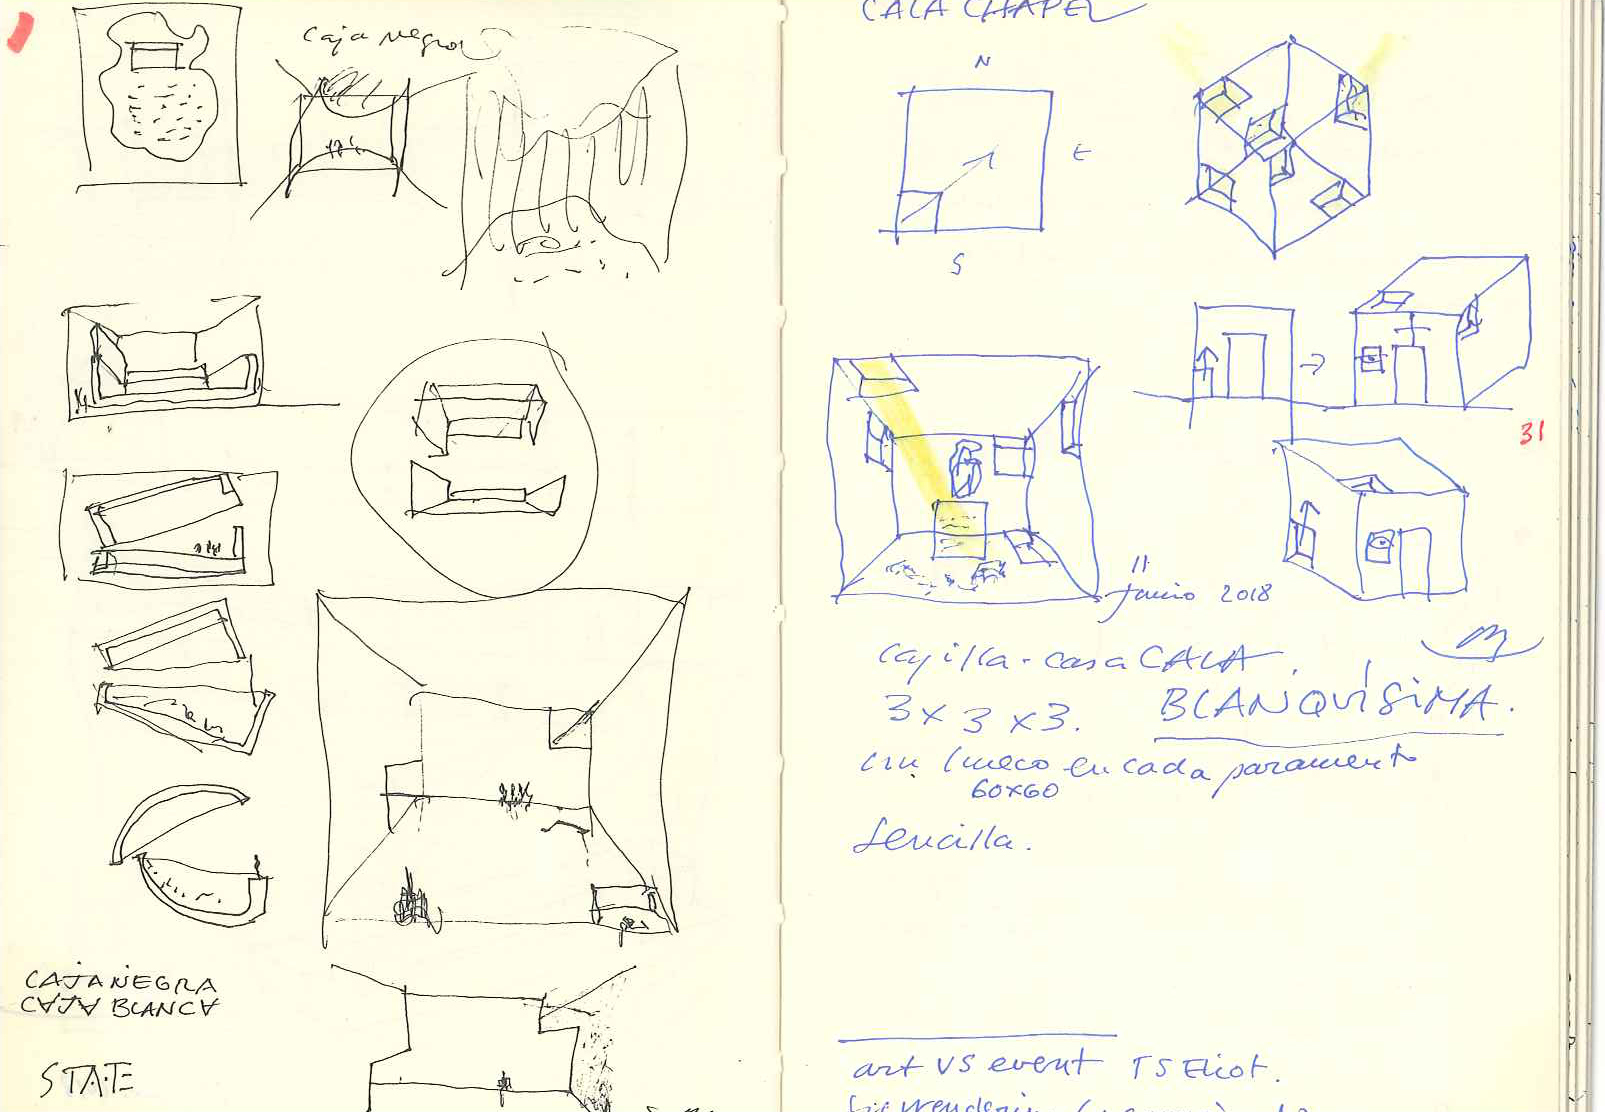 caja negra
CAJA NEGRA
CAJA BLANCA
STATE
CALA CHAPEL
N
E
S
31
11
Junio 2018
capilla-casa CALA.
3x3x3. BLANQUÍSIMA.
un hueco en cada paramento
60x60
Sencilla.
art VS event TS Eliot.